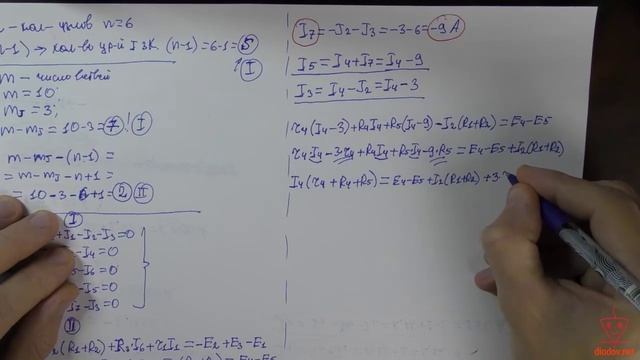 - кол. узлов n=6
n-1) → кол-во ур-й I ЗК (n-1)=6-1=5
I
m - число ветвей
m = 10;
mJ = 3;
m-mJ = 10-3=7! I
m-mJ-(n-1)=
= m-mJ-n+1=
= 10-3-6+1=2 II
I
+I1-I2-I3=0
-I4=0
-I6=0
-I5=0
-I3=0
II
(R1+R2)+R3I6+r1I1=-E2+E3-E1
=E4-E5
I7=-J2-J3=-3-6=-9 A
I5=I4+I7=I4-9
I3=I4-J2=I4-3
r4(I4-3)+R4I4+R5(I4-9)-I2(R1+R2)=E4-E5
r4·I4-3·r4+R4I4+R5I4-9·R5=E4-E5+I2(R1+R2)
I4(r4+R4+R5)=E4-E5+I2(R1+R2)+3·
diodov.net